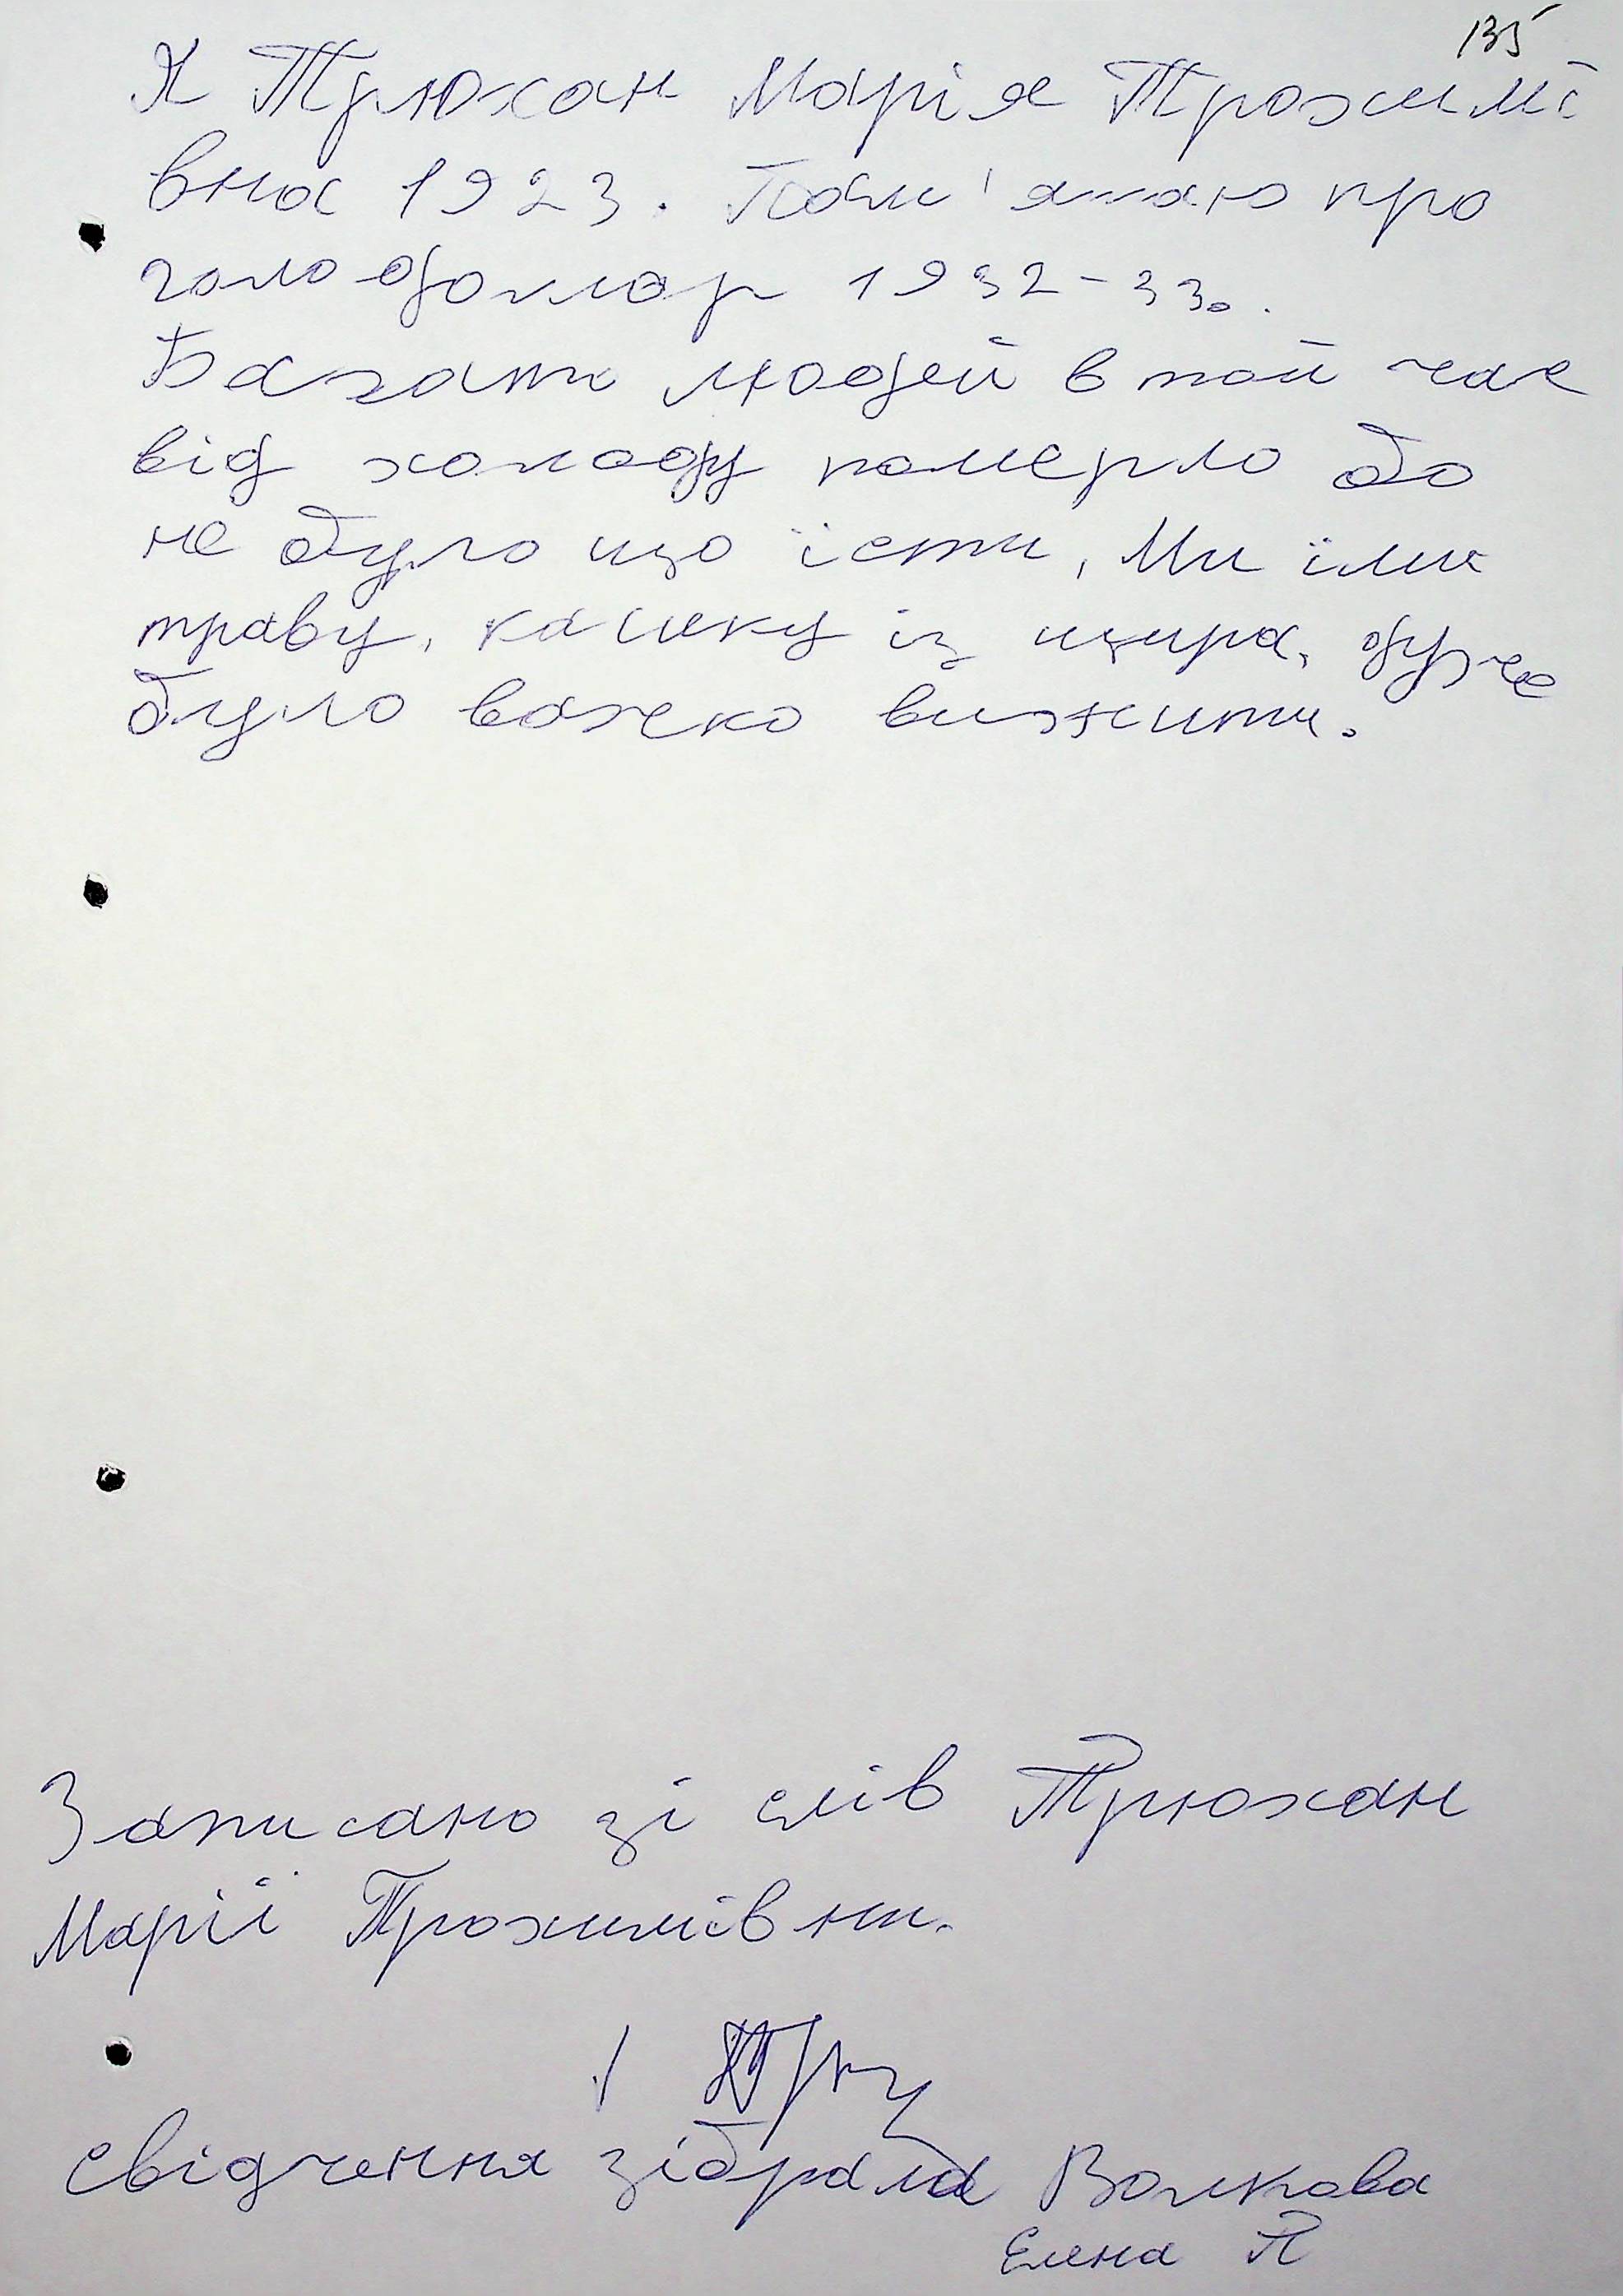 135
Я Трюхан Марія Трохимі
вна 1923. Пам'ятаю про
голодомор 1932-33.
Багато людей в той час
від холоду померло бо
не було що їсти, Ми їли
траву, кашку із щира, дуже
було важко вижити.
Записано зі слів Трюхан
Марії Трохимівни.
свідчення зібрала Волкова
Елена П